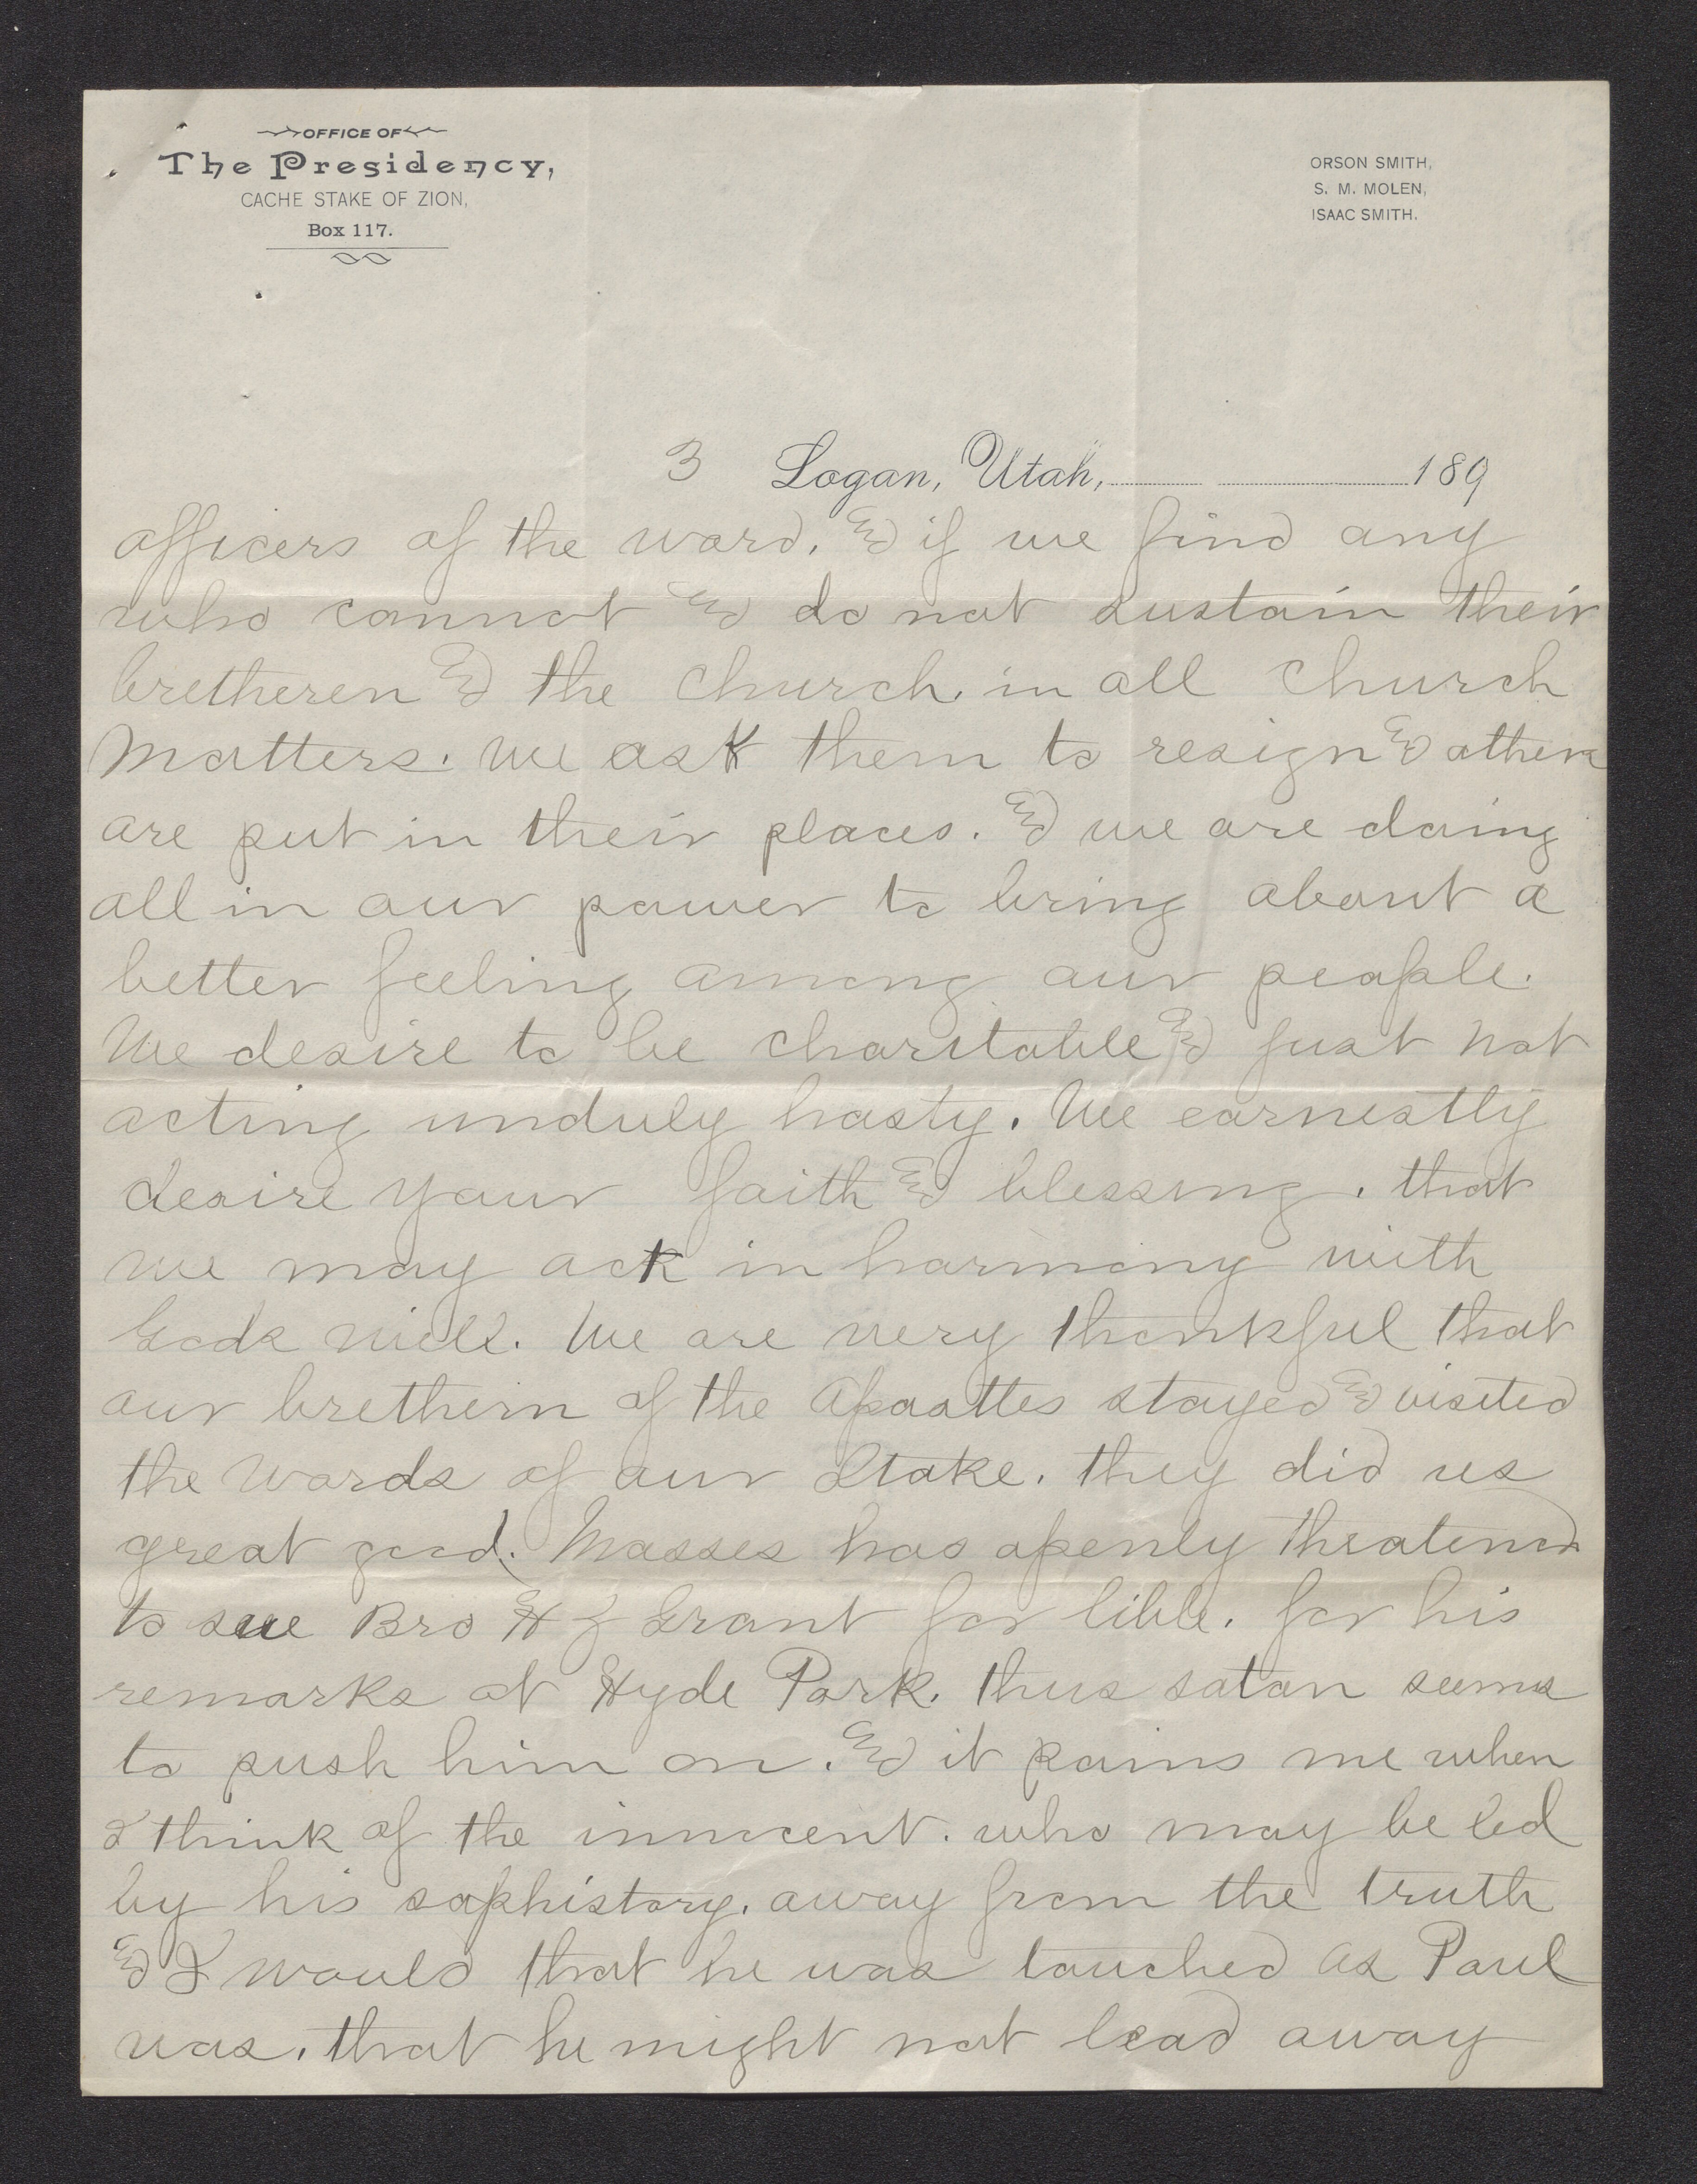 OFFICE OF
The Presidency,
CACHE STAKE OF ZION,
Box 117.
ORSON SMITH,
S. M. MOLEN,
ISAAC SMITH.
3 Logan, Utah, 189
officers of the ward. & if we find any
who cannot & do not sustain their
bretheren & the church. in all church
Matters. we ask them to resign & others
are put in their places. & we are doing
all in our power to bring about a
better feeling among our people.
We desire to be charitable & just not
acting unduly hasty. We earnestly
desire your faith & blessing. that
we may act in harmony with
Gods will. We are very thankful that
our brethern of the Apostles stayed & visited
the Wards of our Stake. they did us
great good. Masses has openly threatened
to sue Bro H J Grant for lible. for his
remarks at Hyde Park. thus satan seems
to push him on. & it pains me when
I think of the innocent. who may be led
by his sophistory. away from the truth
& I would that he was touched as Paul
was. that he might not lead away